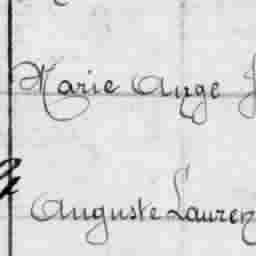 Marie Ange
Auguste Lauren